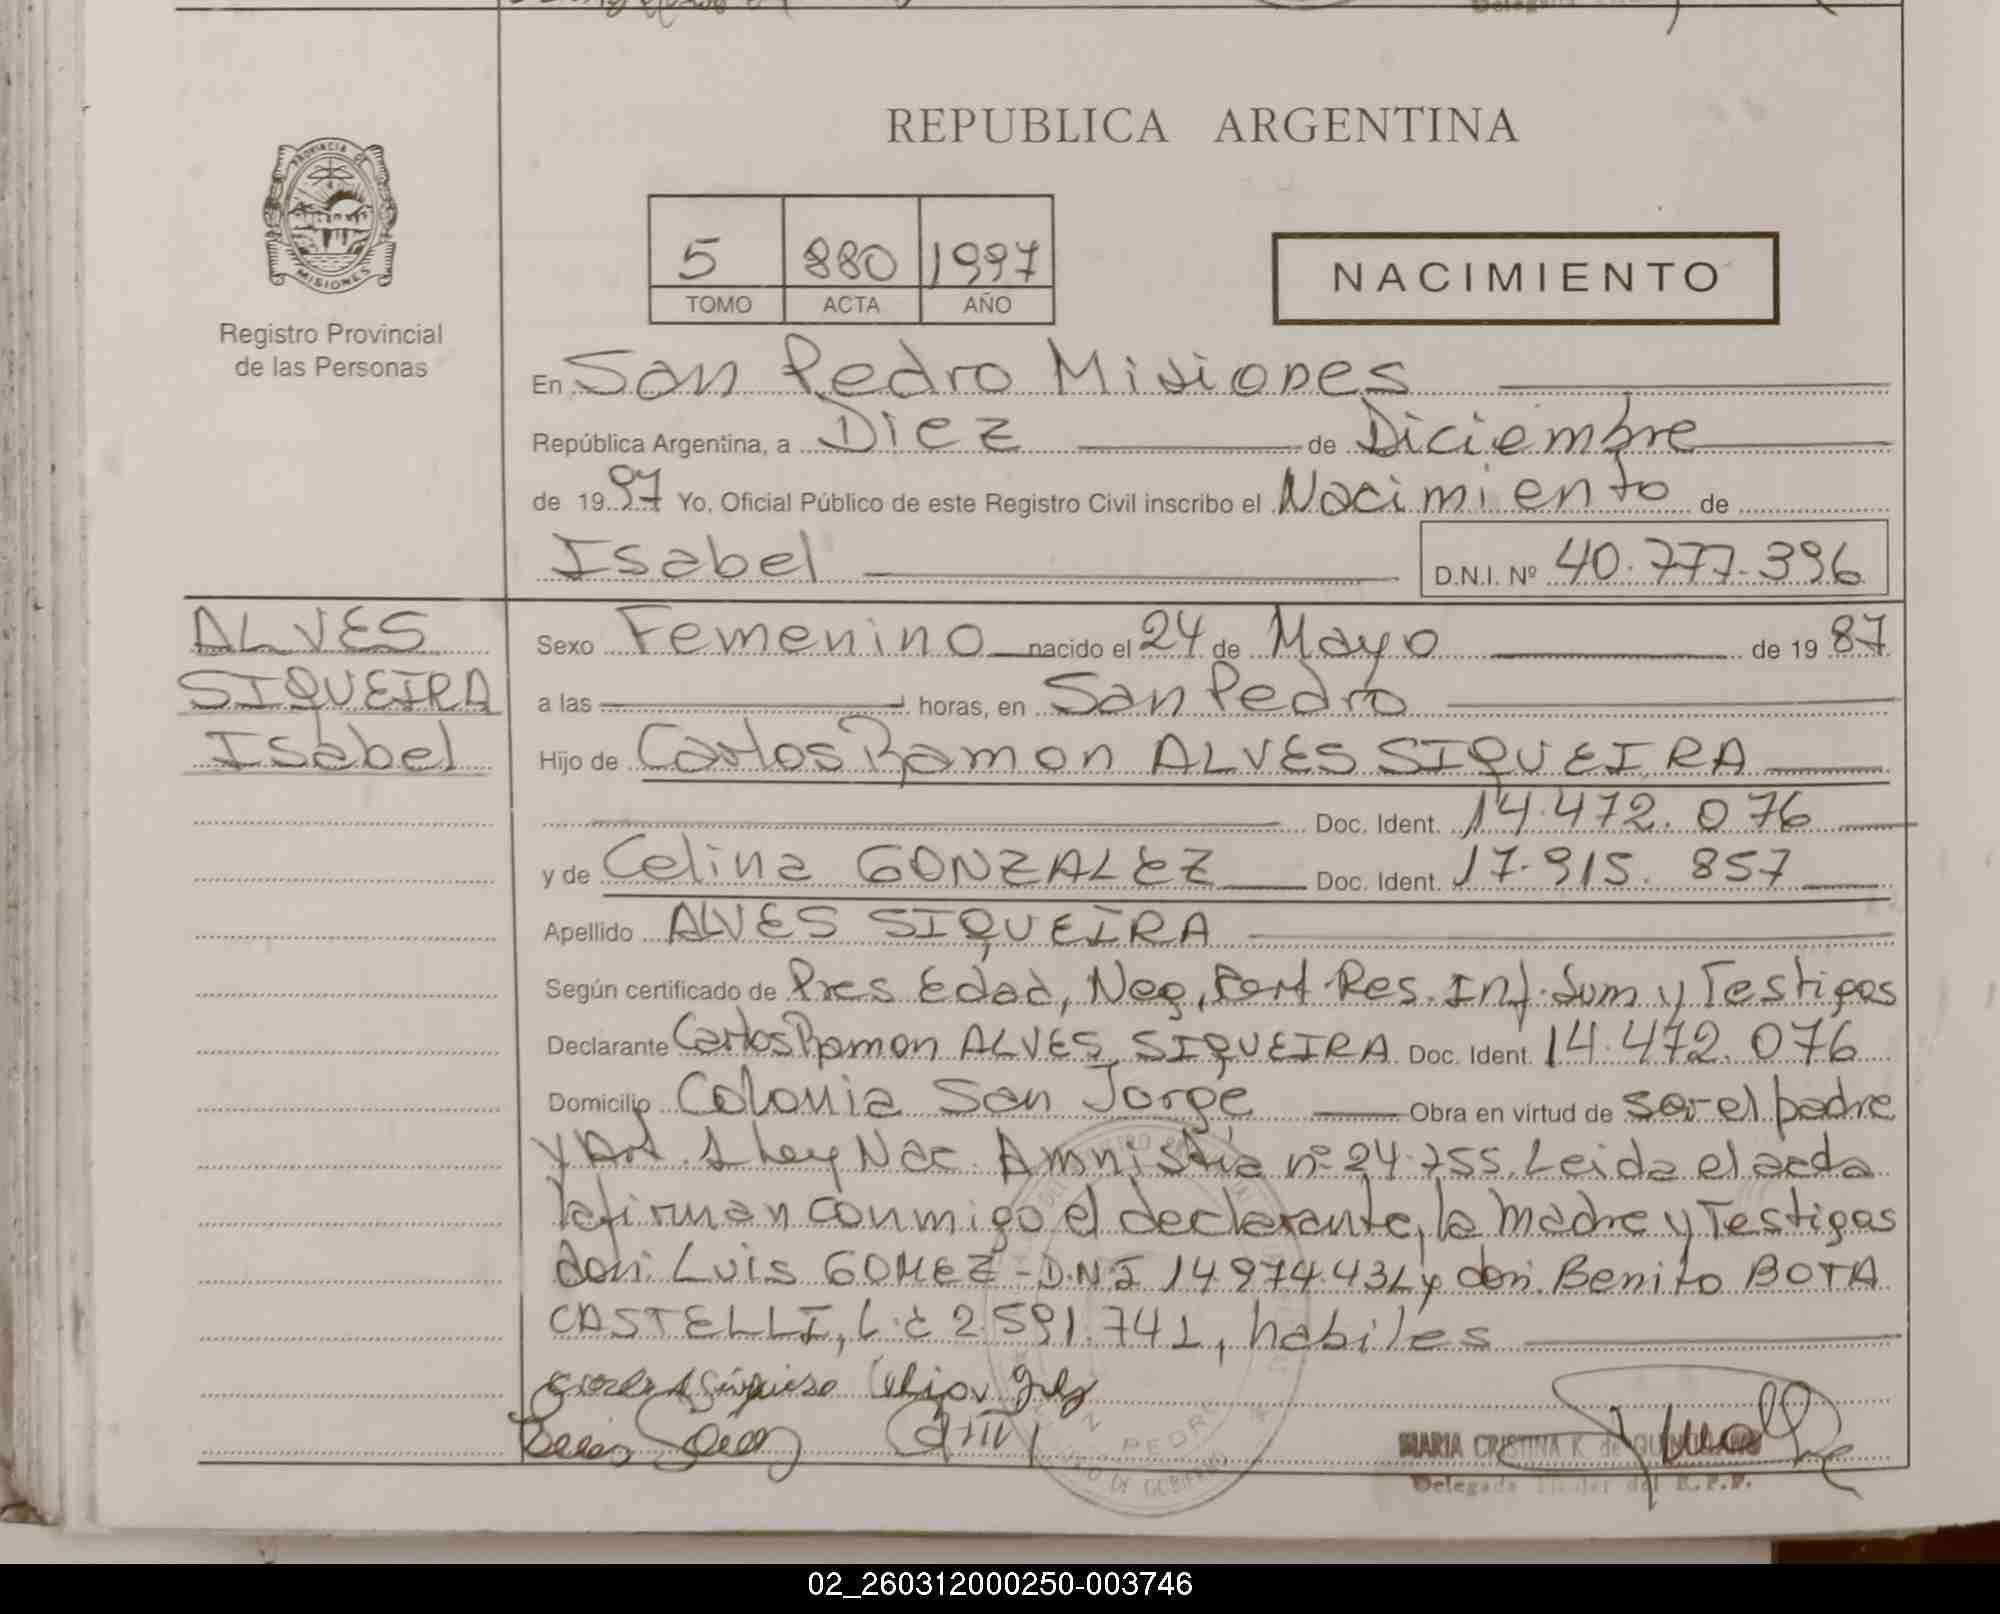 REPUBLICA ARGENTINA
PROVINCIA DE
MISIONES
Registro Provincial
de las Personas
5 880 1997
TOMO ACTA AÑO
NACIMIENTO
En San Pedro Misiones
República Argentina, a Diez de Diciembre
de 1997 Yo, Oficial Público de este Registro Civil inscribo el Nacimiento de
Isabel D.N.I. Nº 40.777.396
ALVES
SIQUEIRA
Isabel
Sexo Femenino nacido el 24 de Mayo de 1987
a las horas, en San Pedro
Hijo de Carlos Ramon ALVES SIQUEIRA
Doc. Ident. 14.472.076
y de Celina GONZALEZ Doc. Ident. 17.915.857
Apellido ALVES SIQUEIRA
Según certificado de Pres Edad, Neg, Res. Inf. Sum y Testigos
Declarante Carlos Ramon ALVES SIQUEIRA Doc. Ident. 14.472.076
Domicilio Colonia San Jorge Obra en virtud de ser el padre
y Art. 1 Ley Nac. Amnistia nº 24.755. Leida el acta
la firman conmigo el declarante, la madre y Testigos
don: Luis GOMEZ - D.N.I 14.974.431 y don: Benito BOTA
CASTELLI, L.E 2.591.741, habiles
SAN PEDRO
MARIA CRISTINA K. de
Delegada Titular del R.P.P.
02_260312000250-003746